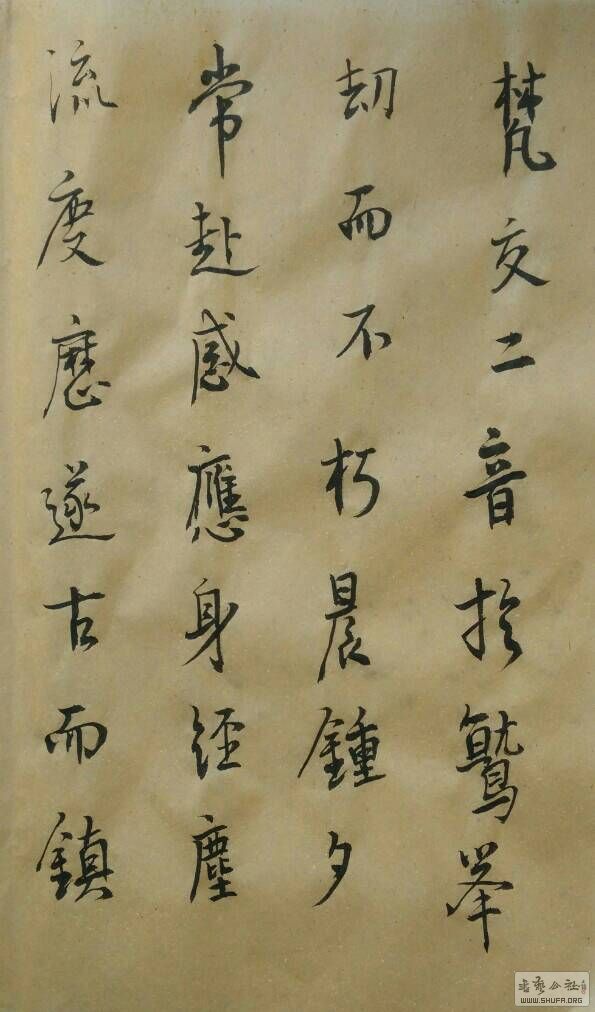 流度歷遂古而鎮
常赴感應身經塵
劫而不朽晨鍾夕
梵交二音於鷲峯
书艺公社
WWW.SHUFA.ORG